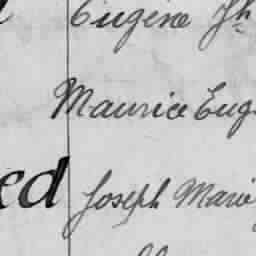 Eugène Jh
Maurice Eug
ed Joseph Marie